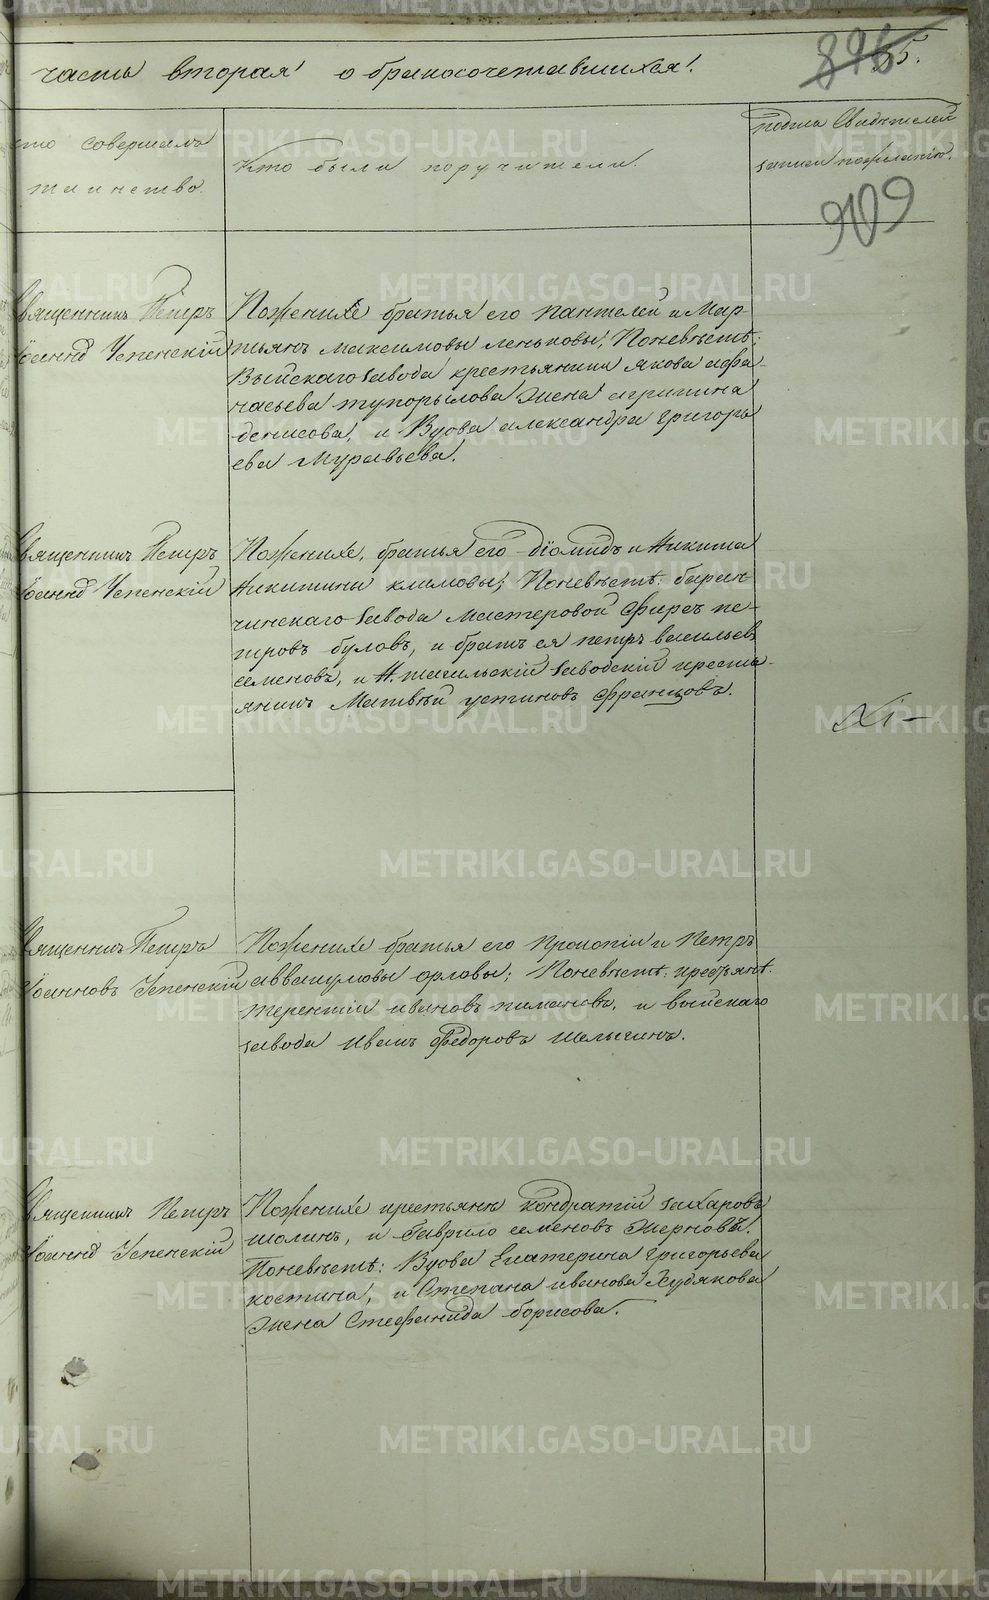 часть вторая о бракосочетавшихся.
896
55.
кто совершалъ
таинство.
Кто были поручители.
подпись Свидетелей
записи по желанію.
909
Священникъ Петръ
Іоанновъ Успенскій
По женихе братья его Пантелей и Мар-
тьянъ Максимовы Леньковы; По невѣстѣ:
Выйскаго завода крестьянина Якова Афа-
насьева Тупорылова жена Агрипина
Денисова, и Вдова Александра Григорь-
ева Муравьева.
Священникъ Петръ
Іоанновъ Успенскій
По женихе, братья его Діомидъ и Никита
Никитины Климовы; По невѣстѣ: баран-
чинскаго завода Мастеровой Фирсъ пе-
тровъ буловъ, и братъ ея петръ васильевъ
семеновъ, и Н. тагильскій заводскій кресть-
янинъ Матвѣй устиновъ Францовъ.
Священникъ Петръ
Іоанновъ Успенскій
По женихе братья его Прокопій и Петръ
аввакумовы орловы; По невѣстѣ: крестьянѣ
терентій ивановъ пимановъ, и выйскаго
завода Иванъ Федоровъ шелыгинъ.
Священникъ Петръ
Іоанновъ Успенскій
По женихе крестьяне кондратій захаровъ
шолинъ, и Гаврило семеновъ Жерновъ.
По невѣстѣ: Вдова Екатерина Григорьева
костина, и Степана иванова Худякова
жена Стефанида борисова.
METRIKI.GASO-URAL.RU